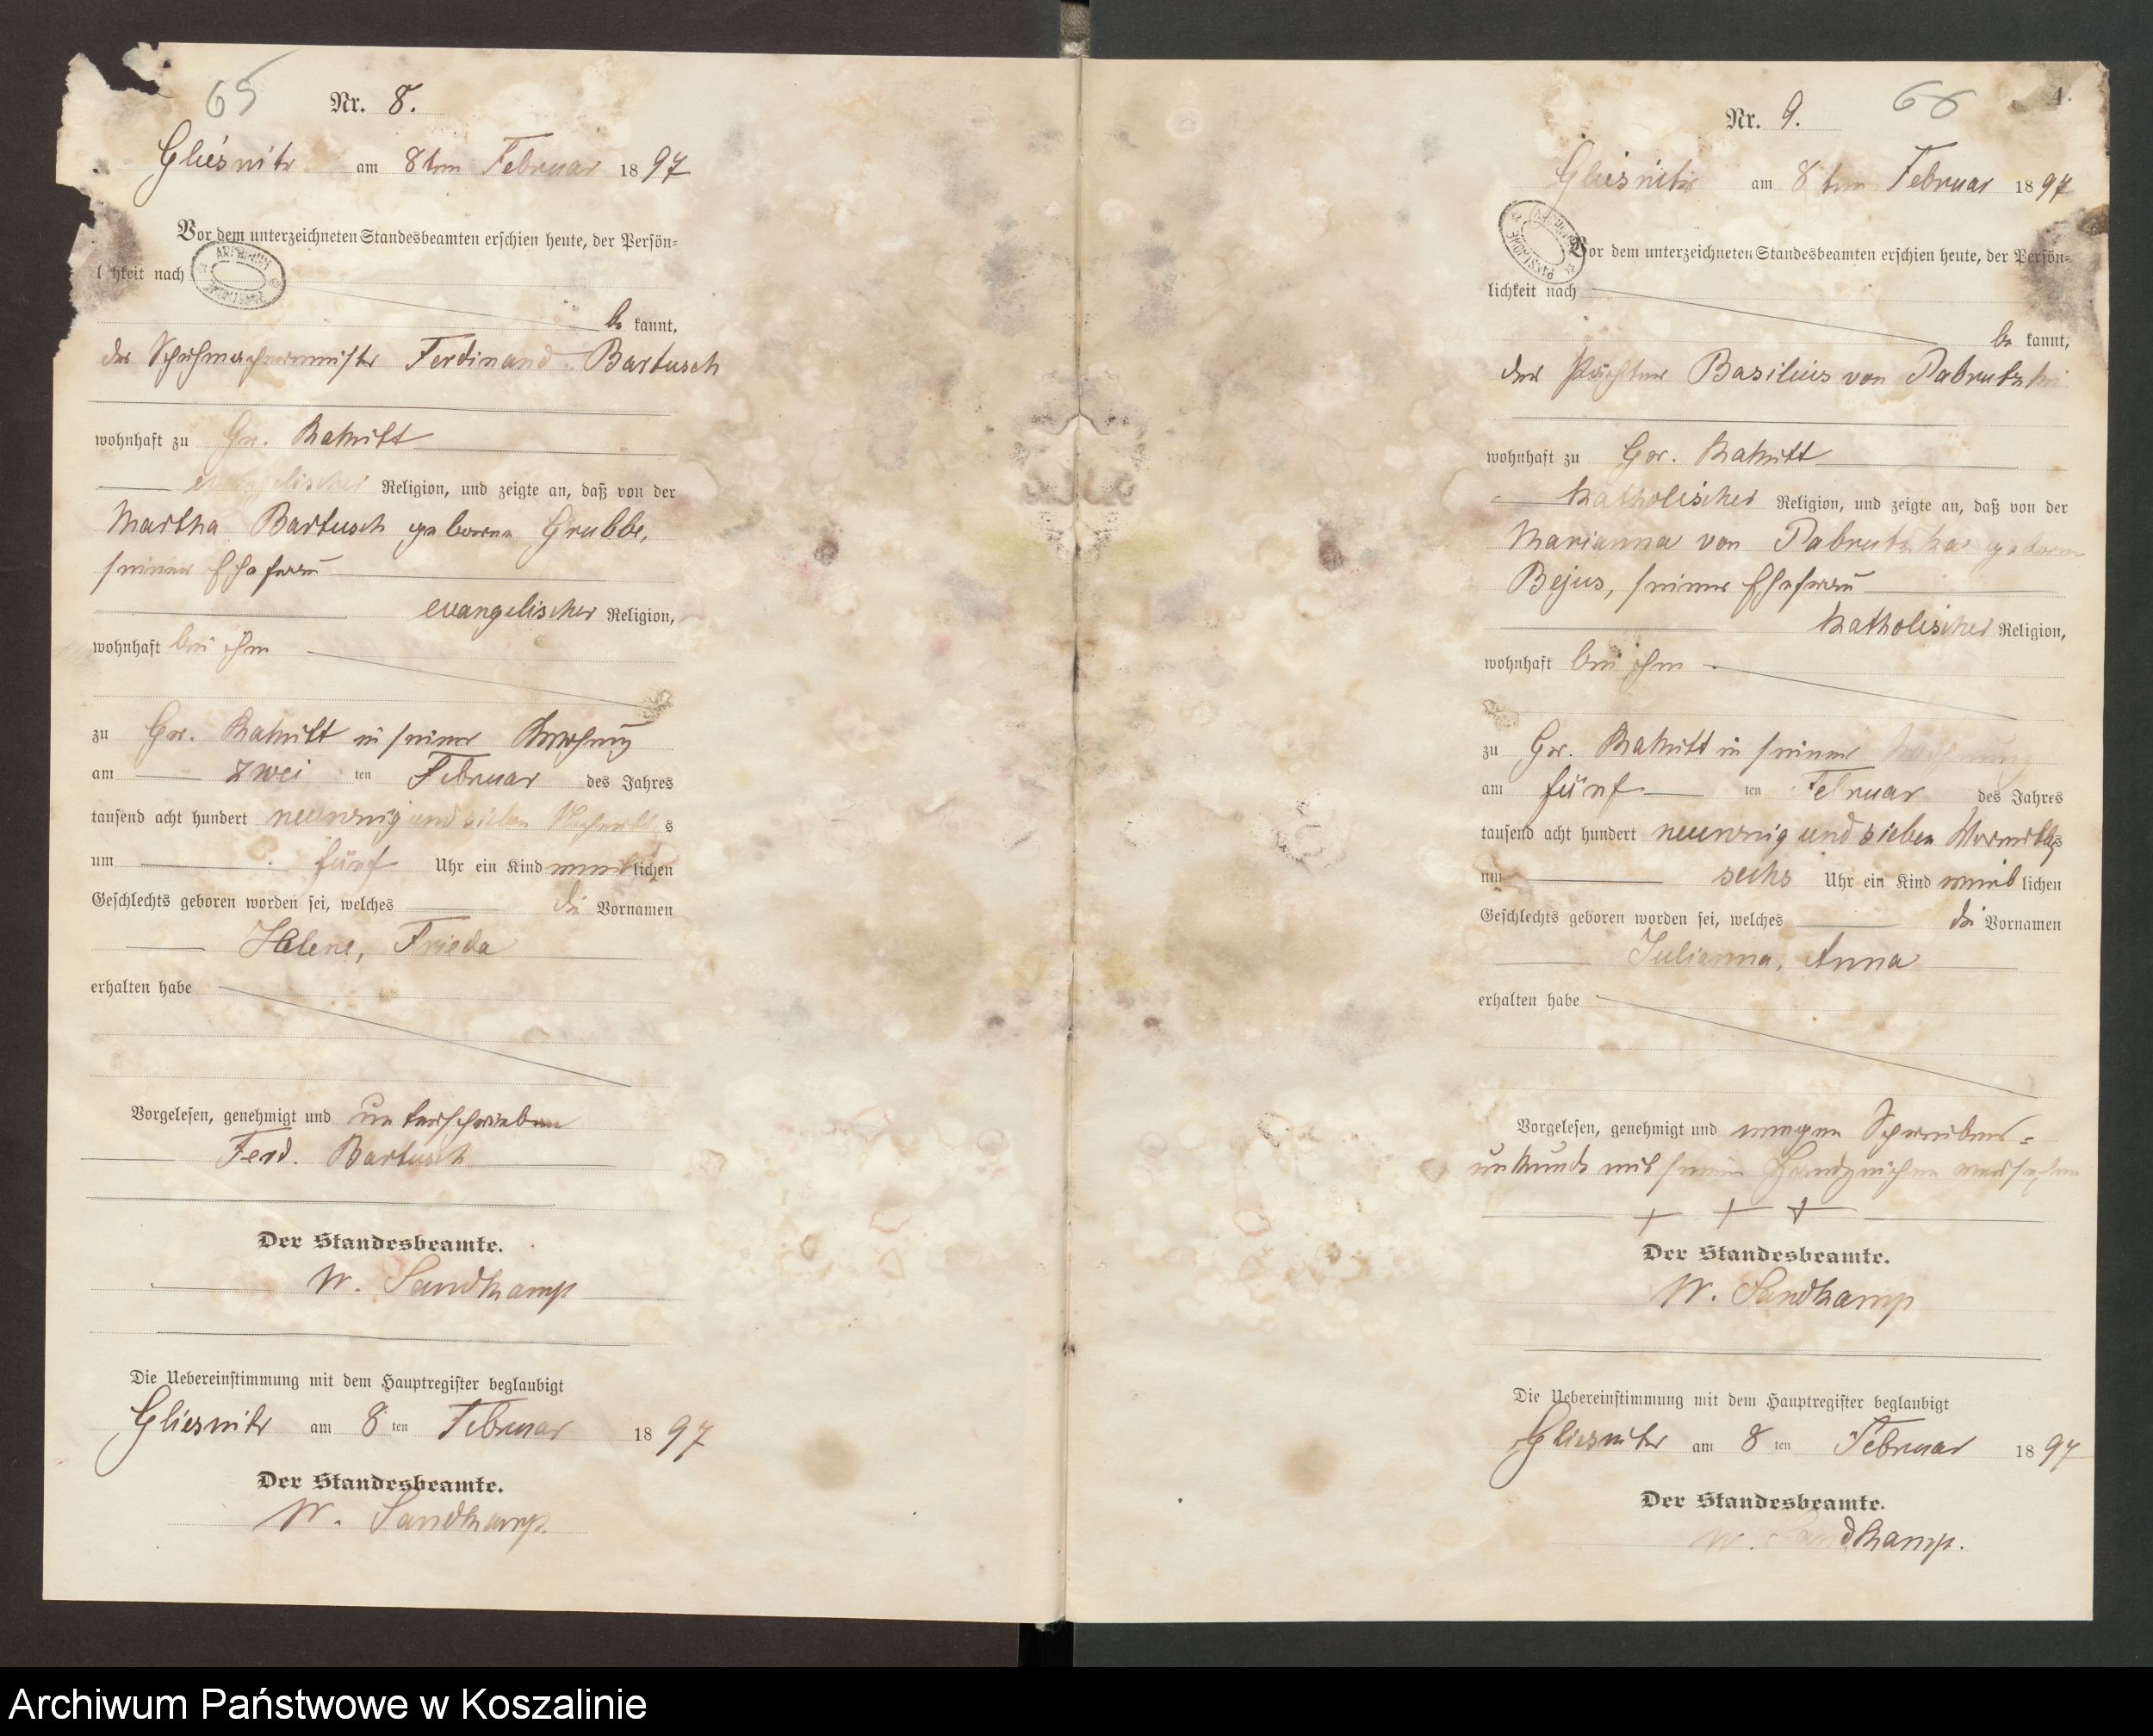 65
Nr. 8.
Gliesnitz am 8ten Februar 1897
Vor dem unterzeichneten Standesbeamten erschien heute, der Persön=
lichkeit nach
be kannt,
der Schuhmachermeister Ferdinand Bartusch
wohnhaft zu Gr. Rakitt
evangelischer Religion, und zeigte an, daß von der
Martha Bartusch geborne Grubbe,
seiner Ehefrau
evangelischer Religion,
wohnhaft bei ihm
zu Gr. Rakitt in seiner Wohnung
am zwei ten Februar des Jahres
tausend acht hundert neunzig und sieben Nachmittags
um fünf Uhr ein Kind weiblichen
Geschlechts geboren worden sei, welches die Vornamen
Helene, Frieda
erhalten habe
Vorgelesen, genehmigt und unterschrieben
Ferd. Bartusch
Der Standesbeamte.
W. Sandkamp
Die Uebereinstimmung mit dem Hauptregister beglaubigt
Gliesnitz am 8 ten Februar 1897
Der Standesbeamte.
W. Sandkamp.
66
4.
Nr. 9.
Gliesnitz am 8ten Februar 1897
Vor dem unterzeichneten Standesbeamten erschien heute, der Persön=
lichkeit nach
be kannt,
der Pächter Basilius von Dabrutzki
wohnhaft zu Gr. Rakitt
katholischer Religion, und zeigte an, daß von der
Marianna von Dabrutzka geborne
Bejus, seiner Ehefrau
katholischer Religion,
wohnhaft bei ihm
zu Gr. Rakitt in seiner Wohnung
am fünf ten Februar des Jahres
tausend acht hundert neunzig und sieben Vormittags
um sechs Uhr ein Kind weiblichen
Geschlechts geboren worden sei, welches die Vornamen
Julianna, Anna
erhalten habe
Vorgelesen, genehmigt und wegen Schreibens=
unkunde mit seinem Handzeichen versehen
+ + +
Der Standesbeamte.
W. Sandkamp
Die Uebereinstimmung mit dem Hauptregister beglaubigt
Gliesnitz am 8 ten Februar 1897
Der Standesbeamte.
W. Sandkamp.
Archiwum Państwowe w Koszalinie